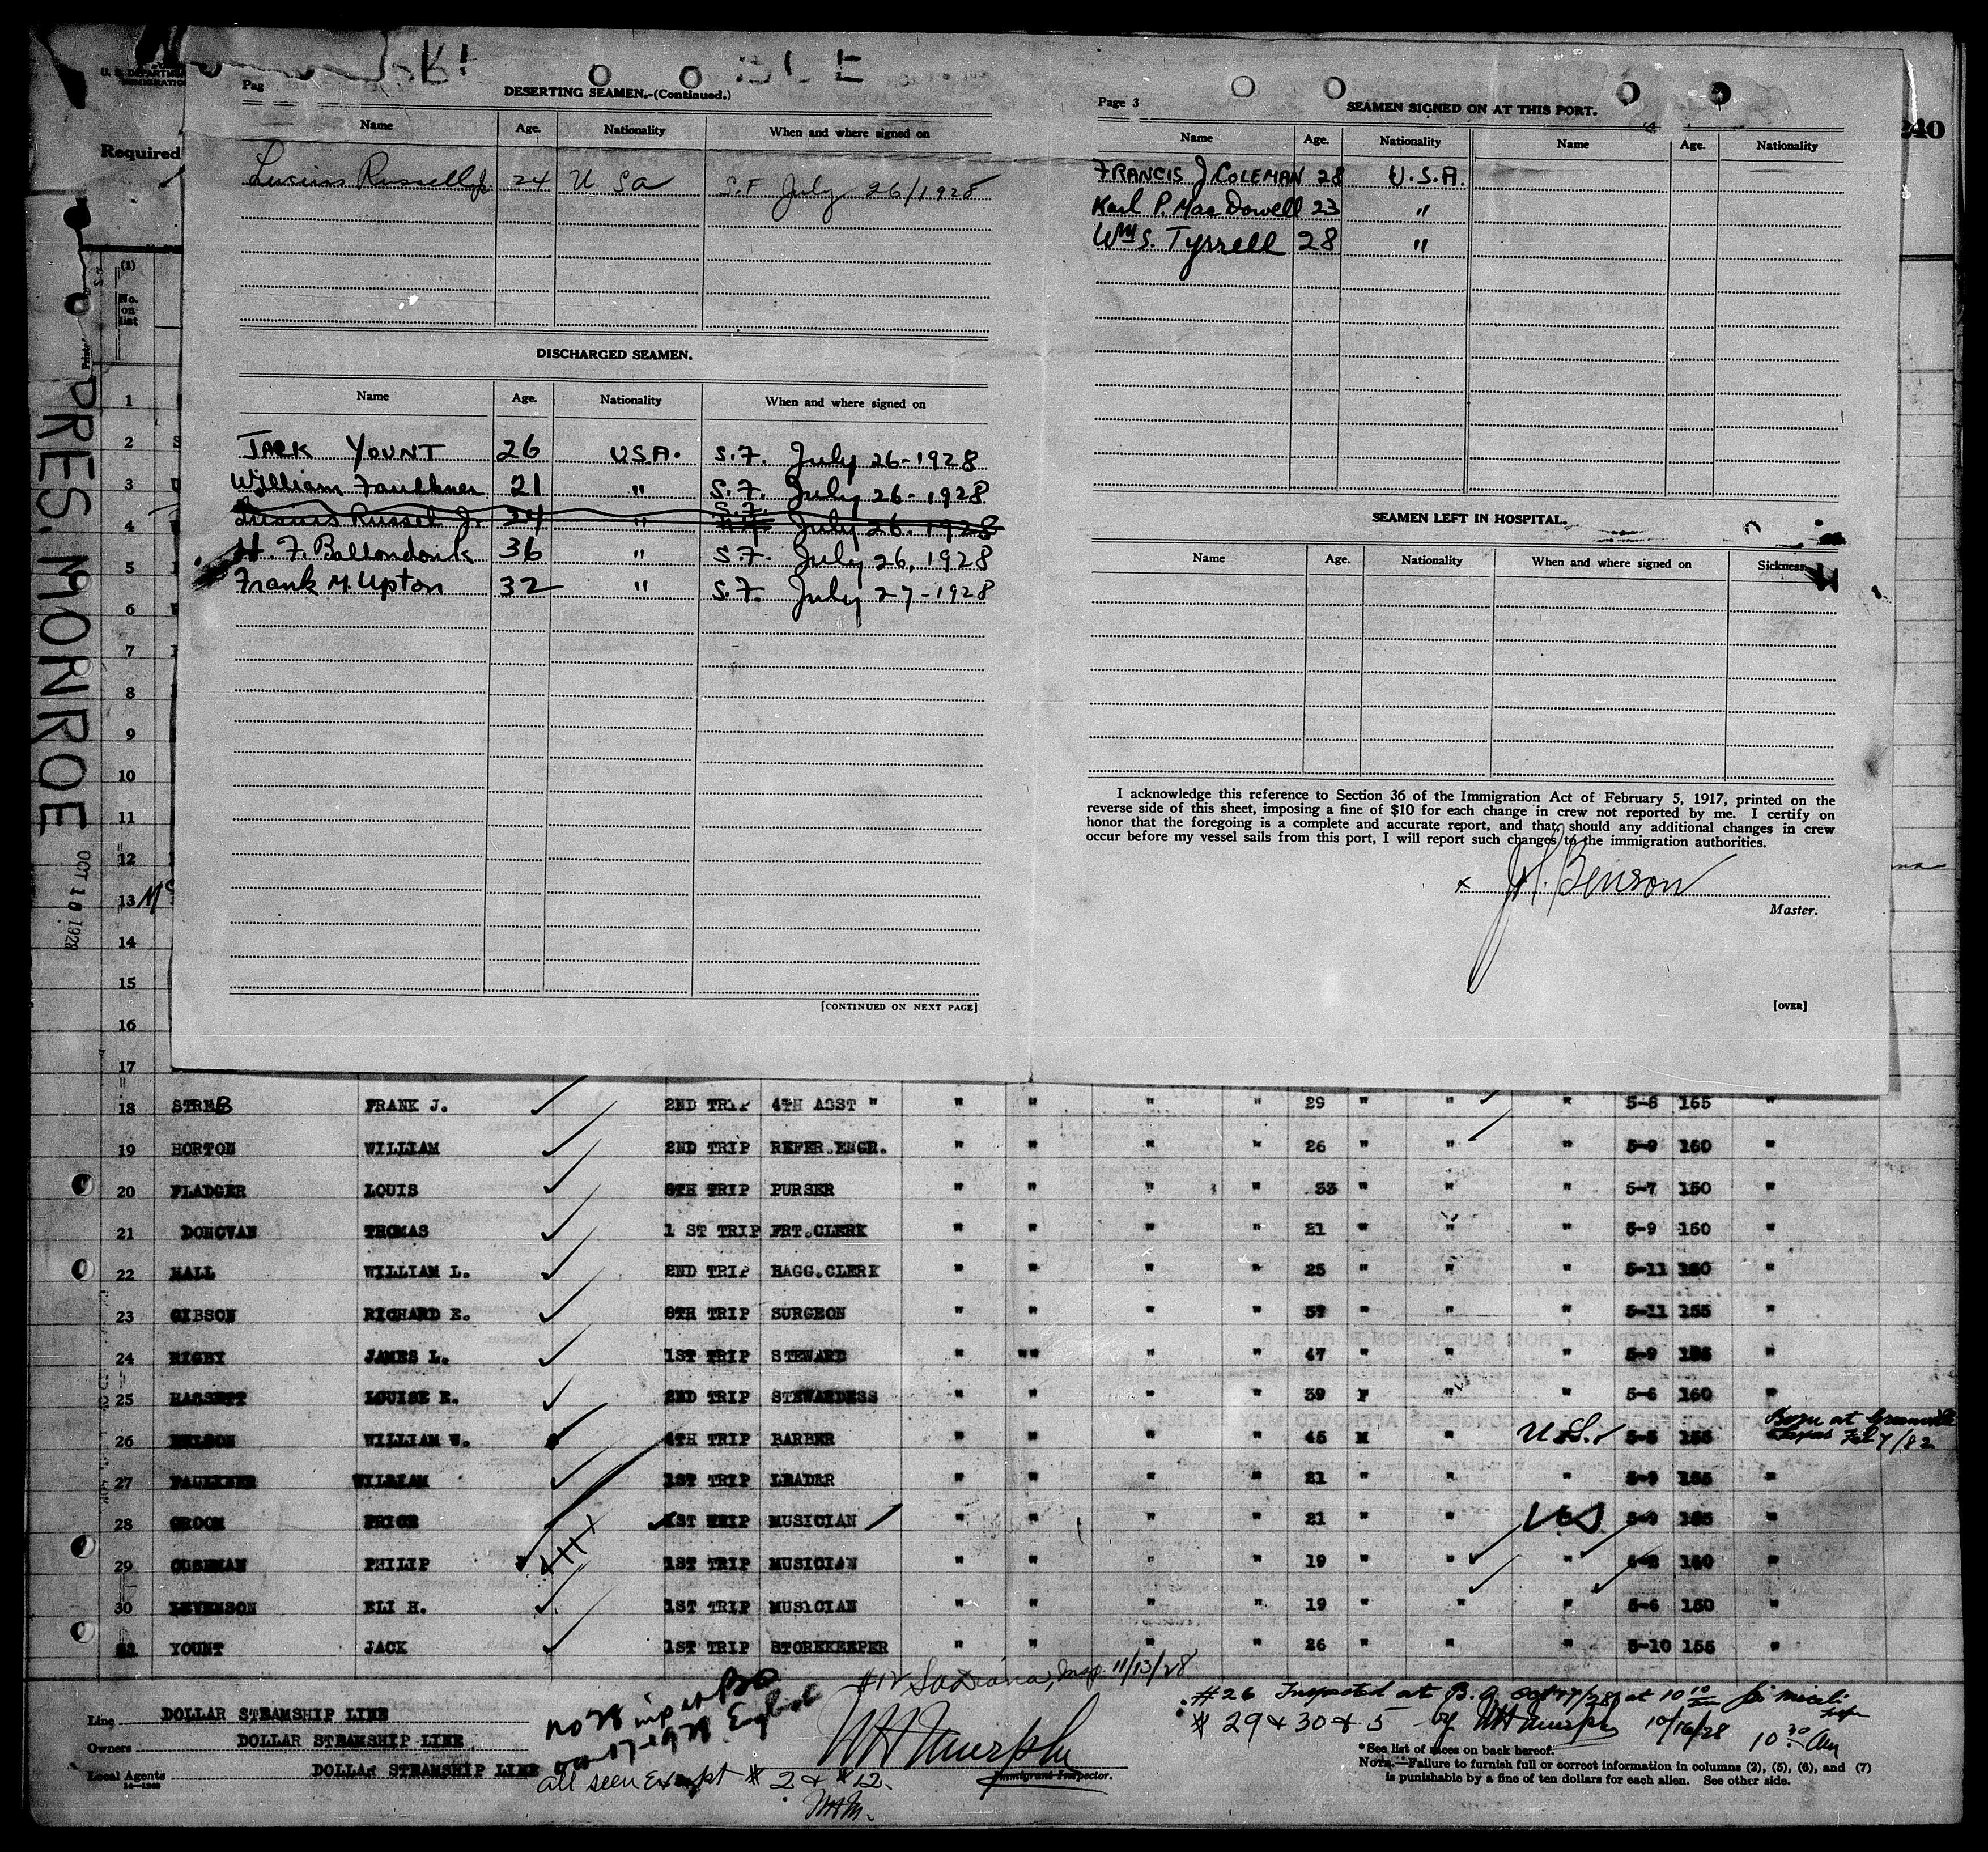 240
Required
PRES. MONROE
OCT 10 1928
DESERTING SEAMEN.-(Continued.)
Name Age. Nationality When and where signed on
Lucius Russell Jr 24 U Sa S.F. July 26/1928
DISCHARGED SEAMEN.
Name Age. Nationality When and where signed on
JACK YOUNT 26 USA. S.F. July 26-1928
William Faulkner 21 " S.F. July 26-1928
Lucius Russel Jr. 24 " S.F. July 26 1928
36 " S.F. July 26, 1928
Frank M. Upton 32 " S.F. July 27-1928
[CONTINUED ON NEXT PAGE]
Page 3
SEAMEN SIGNED ON AT THIS PORT.
Name Age. Nationality Name Age. Nationality
FRANCIS J COLEMAN 28 U.S.A.
Karl P. MacDowell 23 "
Wm S. Tyrrell 28 "
SEAMEN LEFT IN HOSPITAL.
Name Age. Nationality When and where signed on Sickness
I acknowledge this reference to Section 36 of the Immigration Act of February 5, 1917, printed on the
reverse side of this sheet, imposing a fine of $10 for each change in crew not reported by me. I certify on
honor that the foregoing is a complete and accurate report, and that should any additional changes in crew
occur before my vessel sails from this port, I will report such changes to the immigration authorities.
x Benson
Master.
[OVER]
(1)
No.
on
list
1
2
3
4
5
6
7
8
9
10
11
12
13
14
15
16
17
18 STREB FRANK J. 2ND TRIP 4TH ASST " " " " " 29 " " " 5-6 165 "
19 HORTON WILLIAM 2ND TRIP REFER.ENGR. " " " " 26 " " " 5-9 160 "
20 FLADGER LOUIS 8TH TRIP PURSER " " " " 33 " " " 5-7 150 "
21 DONOVAN THOMAS 1 ST TRIP FRT.CLERK " " " " 21 " " " 5-9 150 "
22 HALL WILLIAM L. 2ND TRIP BAGG.CLERK " " " " 25 " " " 5-11 160 "
23 GIBSON RICHARD E. 8TH TRIP SURGEON " " " " 57 " " " 5-11 155 "
24 RIGBY JAMES L. 1ST TRIP STEWARD " "" " " 47 " " " 5-9 155 "
25 HASSETT LOUISE R. 2ND TRIP STEWARDESS " " " " 39 F " " 5-6 160 "
26 NELSON WILLIAM W. 4TH TRIP BARBER " " " " 45 M " U.S. 5-5 155 Born at Greenville Texas Feb 7/82
27 FAULKNER WILLIAM 1ST TRIP LEADER " " " " 21 " " " 5-9 155 "
28 GROOM PRICE 1ST TRIP MUSICIAN " " " " 21 " " US 5-9 165 "
29 CUSHMAN PHILIP 1ST TRIP MUSICIAN " " " " 19 " " " 5-8 150 "
30 LEVENSON ELI H. 1ST TRIP MUSICIAN " " " " 19 " " " 5-6 150 "
31 YOUNT JACK 1ST TRIP STOREKEEPER " " " " 26 " " " 5-10 155 "
Line DOLLAR STEAMSHIP LINE
Owners DOLLAR STEAMSHIP LINE
Local Agents DOLLAR STEAMSHIP LINE
14-1240
Insp. 11/13/28
all seen Exempt # 2 & #12.
WHM.
WH Murphy
Immigrant Inspector.
#26 Inspected at B.O. Oct 17/28 at 10 10
# 29 & 30 & 5 by WH Murphy 10/16/28 10 30 AM
*See list of races on back hereof.
NOTE.—Failure to furnish full or correct information in columns (2), (5), (6), and (7)
is punishable by a fine of ten dollars for each alien. See other side.